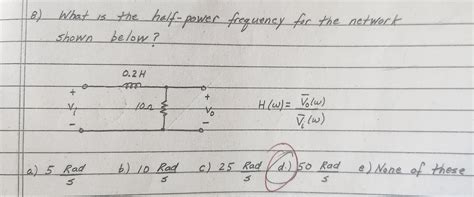 8) What is the half-power frequency for the network
shown below?
0.2H
+ +
V₁ 10Ω V₀ H(ω) = V̅₀(ω) / V̅ᵢ(ω)
- -
a) 5 Rad/s b) 10 Rad/s c) 25 Rad/s d.) 50 Rad/s e) None of these